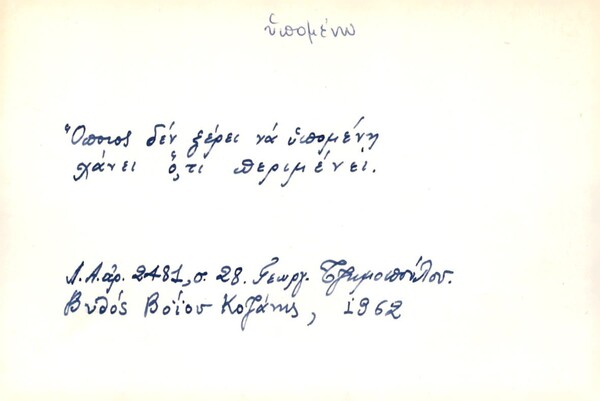 ὑπομένω
Ὅποιος δέν ξέρει νά ὑπομένῃ
χάνει ὅ,τι περιμένει.
Λ.Α. ἀρ. 2481, σ. 28. Γεωργ. Τζημοπούλου.
Βυθός Βοΐου Κοζάνης, 1962